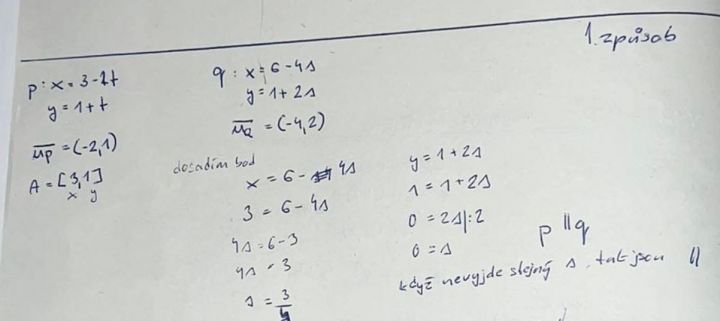 1. způsob
p: x = 3 - 2t
y = 1 + t
up = (-2,1)
A = [3,1]
x y
q: x = 6 - 4s
y = 1 + 2s
uq = (-4,2)
dosadím bod
x = 6 - 4s
3 = 6 - 4s
4s = 6 - 3
4s = 3
s = 3/4
y = 1 + 2s
1 = 1 + 2s
0 = 2s |:2
0 = s
p || q
když nevyjde stejný s, tak jsou ||